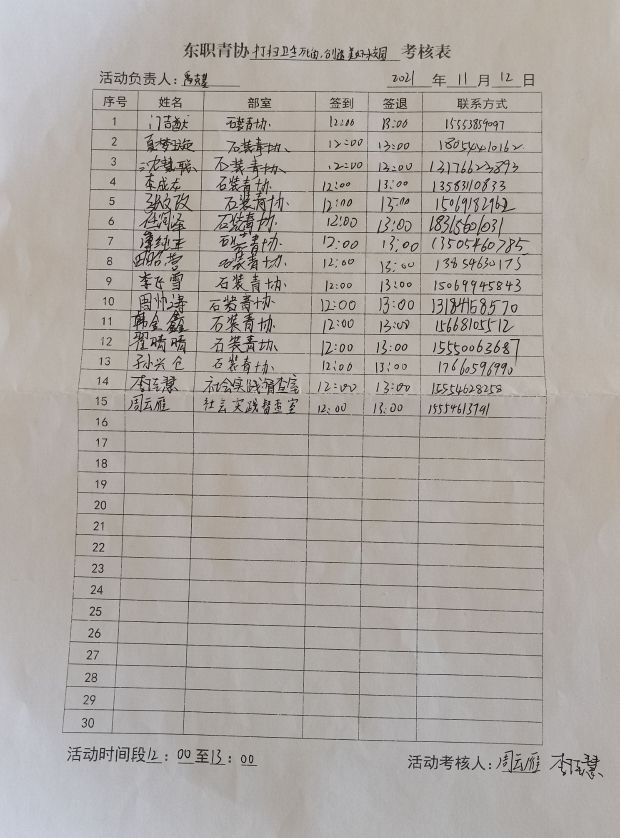 东职青协打扫卫生死角,创造美好校园考核表
活动负责人: 2021年11月12日
序号 姓名 部室 签到 签退 联系方式
1 石装青协 12:00 13:00 15553859097
2 夏梦璇 石装青协 12:00 13:00 18054410162
3 沈慧聪 石装青协 12:00 13:00 13176623893
4 李成龙 石装青协 12:00 13:00 13583110833
5 石装青协 12:00 13:00
6 石装青协 12:00 13:00 18315601031
7 石装青协 12:00 13:00 13505460785
8 石装青协 12:00 13:00 13854630173
9 李飞雪 石装青协 12:00 13:00 15069945843
10 周帅涛 石装青协 12:00 13:00 13184158570
11 韩金鑫 石装青协 12:00 13:00 15668105512
12 翟晴晴 石装青协 12:00 13:00 15550063687
13 孙兴仓 石装青协 12:00 13:00 17660596990
14 李钰慧 社会实践督查室 12:00 13:00 15554628258
15 周云雁 社会实践督查室 12:00 13:00 15554613741
16
17
18
19
20
21
22
23
24
25
26
27
28
29
30
活动时间段12:00至13:00 活动考核人:周云雁 李钰慧